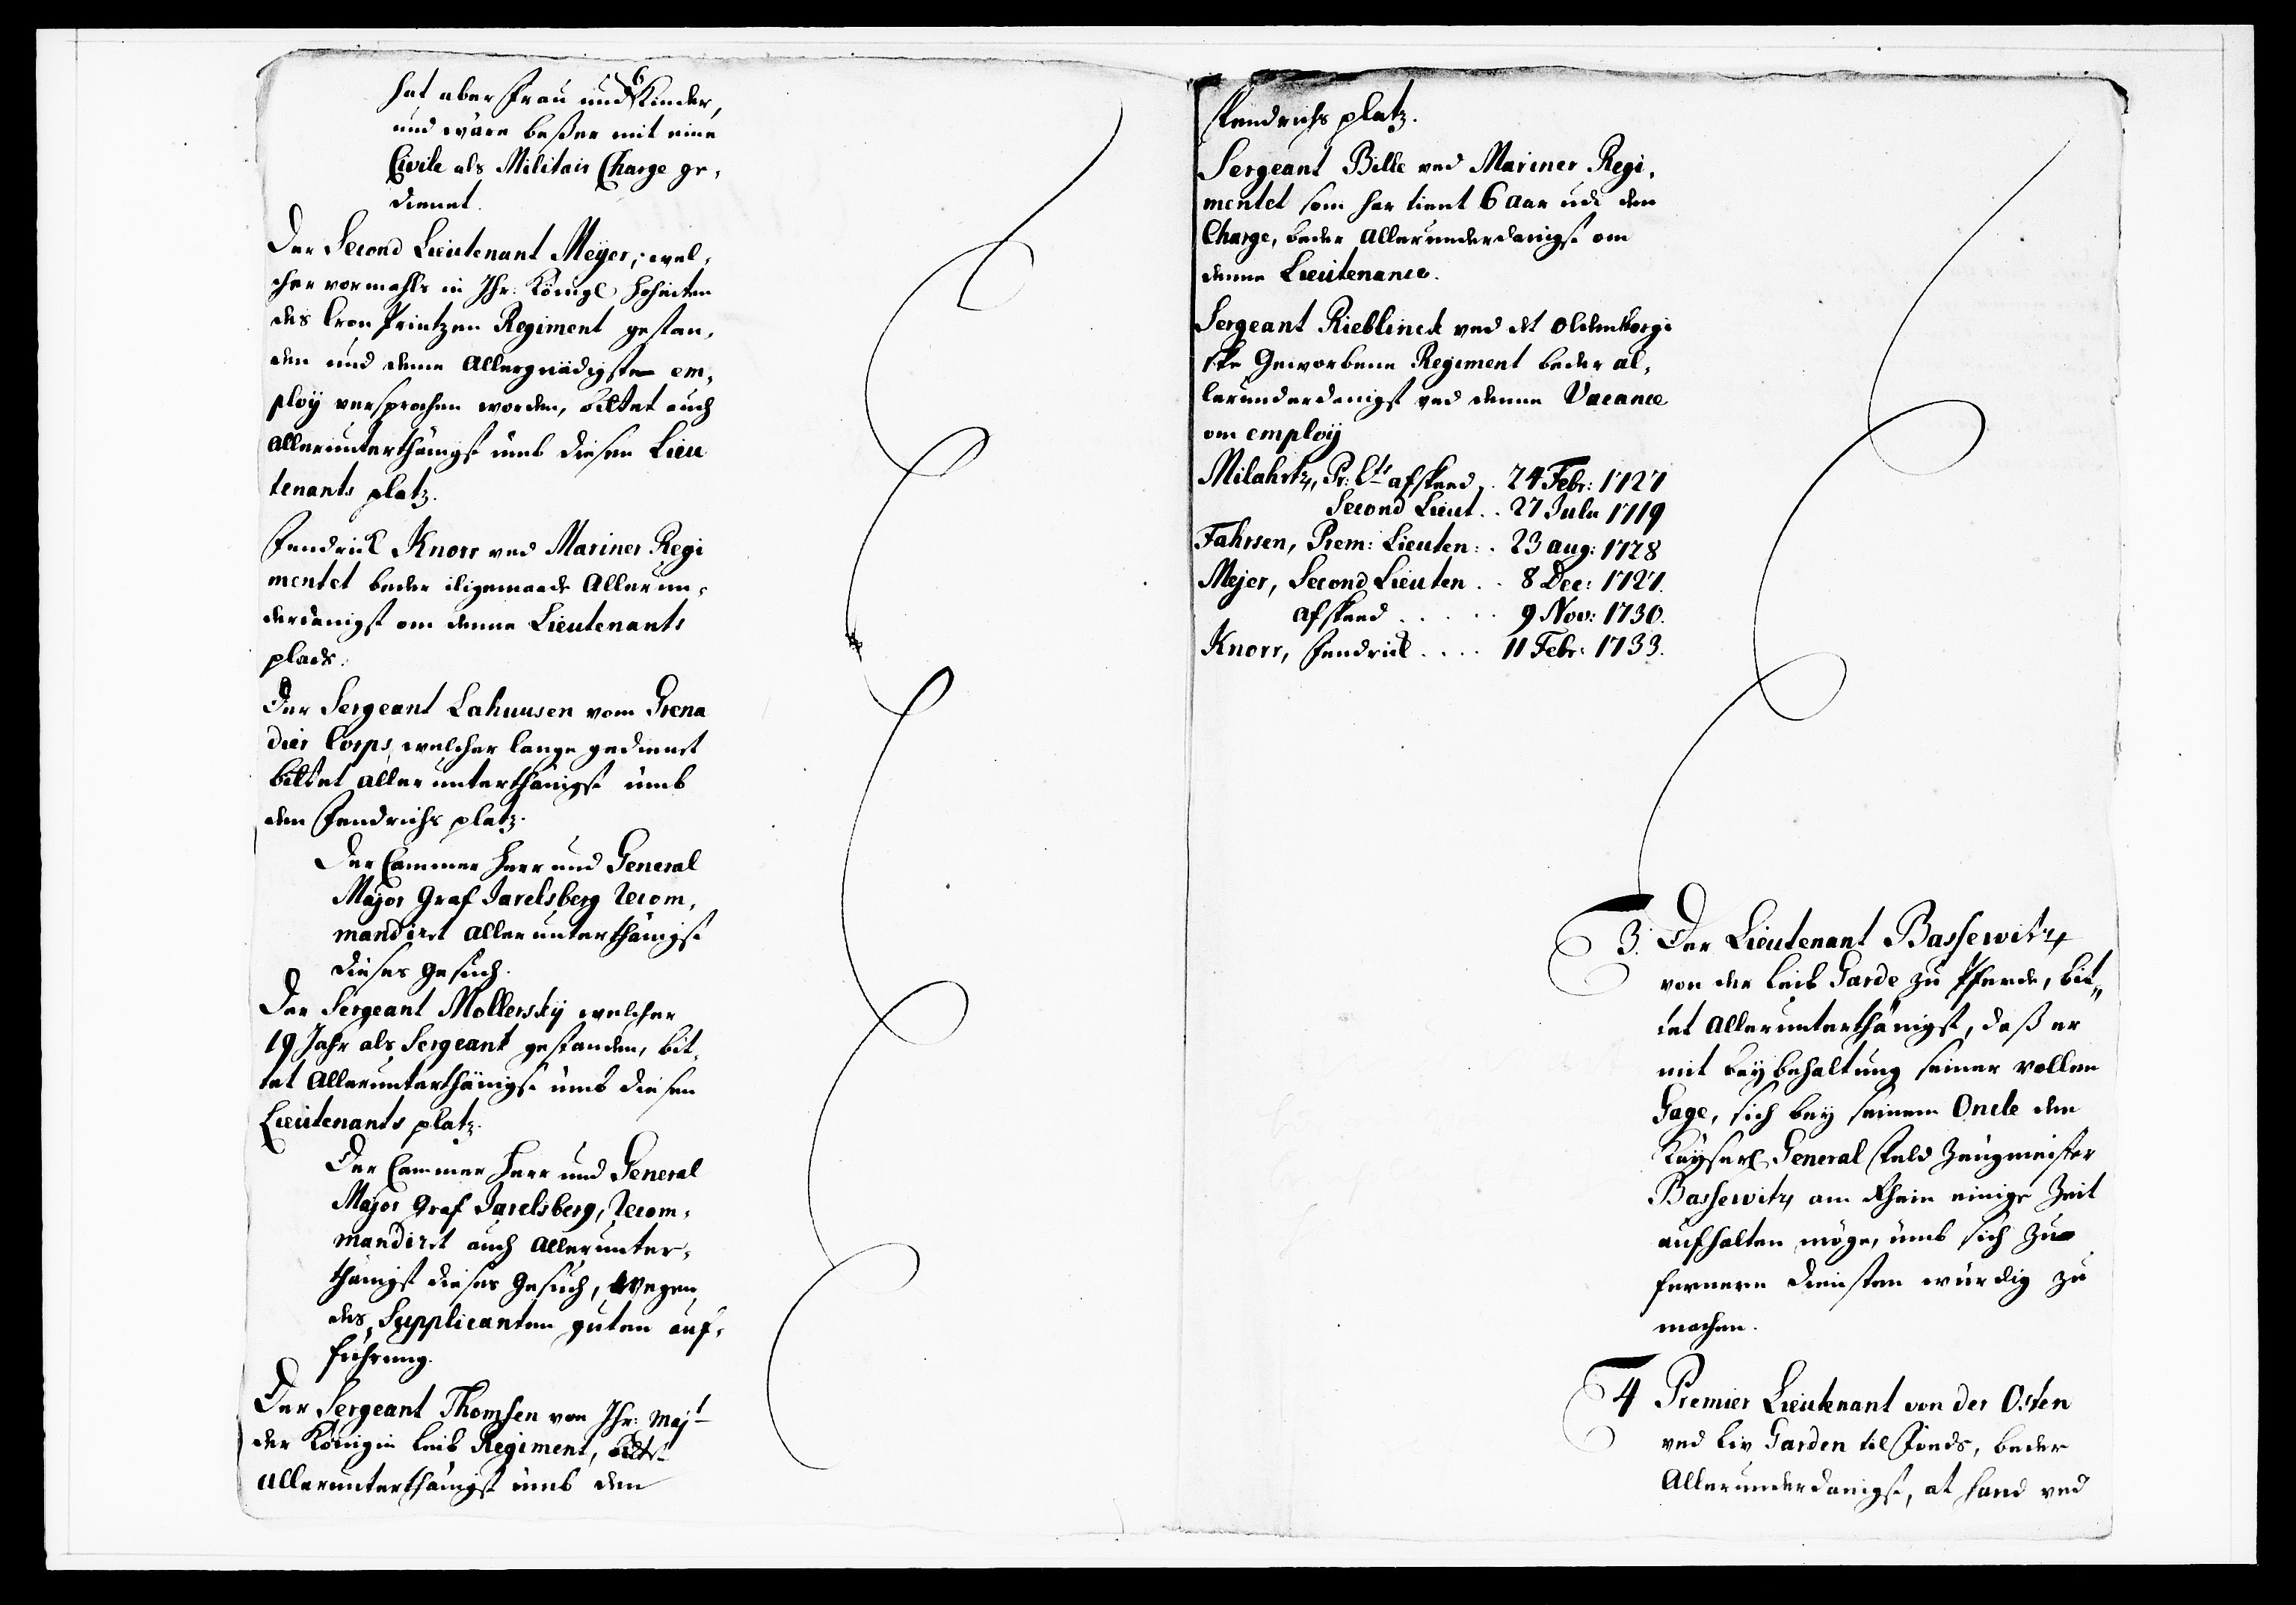 hat aber Frau und 6 Kinder,
und wäre beßer mit eine
Civile als Militair Charge ge-
dienet.
Der Second Lieutenant Meÿer, wel-
cher vormahls in Ihr: Königl Hoheiten
des Cron Printzen Regiment gestan-
den und deme Allergnädigste em-
ploÿ versprochen worden, bittet auch
allerunterthänigst umb diesen Lieu
tenants platz.
Fendrick Knorr ved Mariner Regi
mentet beder iligemaade Allerun-
derdanigst om denne Lieutenants
plads.
Der Sergeant Lahuusen vom Grena
dier Corps, welcher lange gedienet
bittet allerunterthänigst umb
den Fendrichs platz.
Der Cammer Herr und General
Major Graf Jarelsberg recom-
mandiret allerunterthänigst
dieses Gesuch.
Der Sergeant Mollerskÿ welcher
19 Jahr als Sergeant gestanden, bit-
tet Allerunterthänigst umb diesen
Lieutenants platz.
Der Cammer Herr und General
Major Graf Jarelsberg, recom-
mandiret auch allerunter-
thänigst dieses Gesuch, wegen
des Supplicanten guten auf-
führung.
Der Sergeant Thomsen von Ihr: Majt
der Königin Leib Regiment, bitt
allerunterthänigst umb den
Fendrichs platz.
Sergeant Bille ved Mariner Regi-
mentet som har tient 6 aar udi den
Charge, beder allerunderdanigst om
denne Lieutenance.
Sergeant Rieblinck ved det Oldenborgi
ske Geworbene Regiment beder al-
lerunderdanigst ved denne Vacance
om employ
Milahrtz, Pr: Lts afskeed . 24 Febr: 1727
Second Lieut . . 27 Julii 1719
Fahrsen, Prem: Lieuten: . 23 aug: 1728
Mejer, Second Lieuten . . 8 Dec: 1727.
afskeed . . . . . 9 Nov: 1730.
Knorr, Fendrick . . . . 11 Febr: 1733.
3. Der Lieutenant Bassewitz
von der Leib Garde zu Pferde, bit-
tet Allerunterthänigst, daß er
mit beÿbehaltung seiner vollen
Gage, sich beÿ seinem Oncle den
Kaÿserl General Feld Zeugmeister
Bassewitz am Rhein einige Zeit
aufhalten möge, umb sich zu
fernern Diensten würdig zu
machen.
4 Premier Lieutenant von der Osten
ved Liv Garden til Fods, beder
Allerunderdanigst, at hand ved